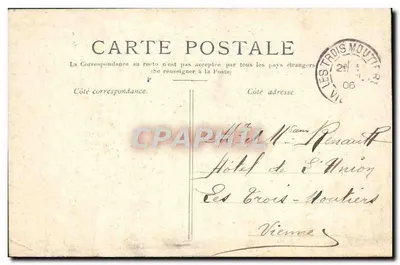 CARTE POSTALE
La Correspondance au recto n'est pas acceptée par tous les pays étrangers
(Se renseigner à la Poste)
Côté correspondance.
Côté adresse.
LES TROIS MOUTIERS
06
CPARAMA
Mr et Mme Renault
Hôtel de l'Union
Les Trois-Moutiers
Vienne